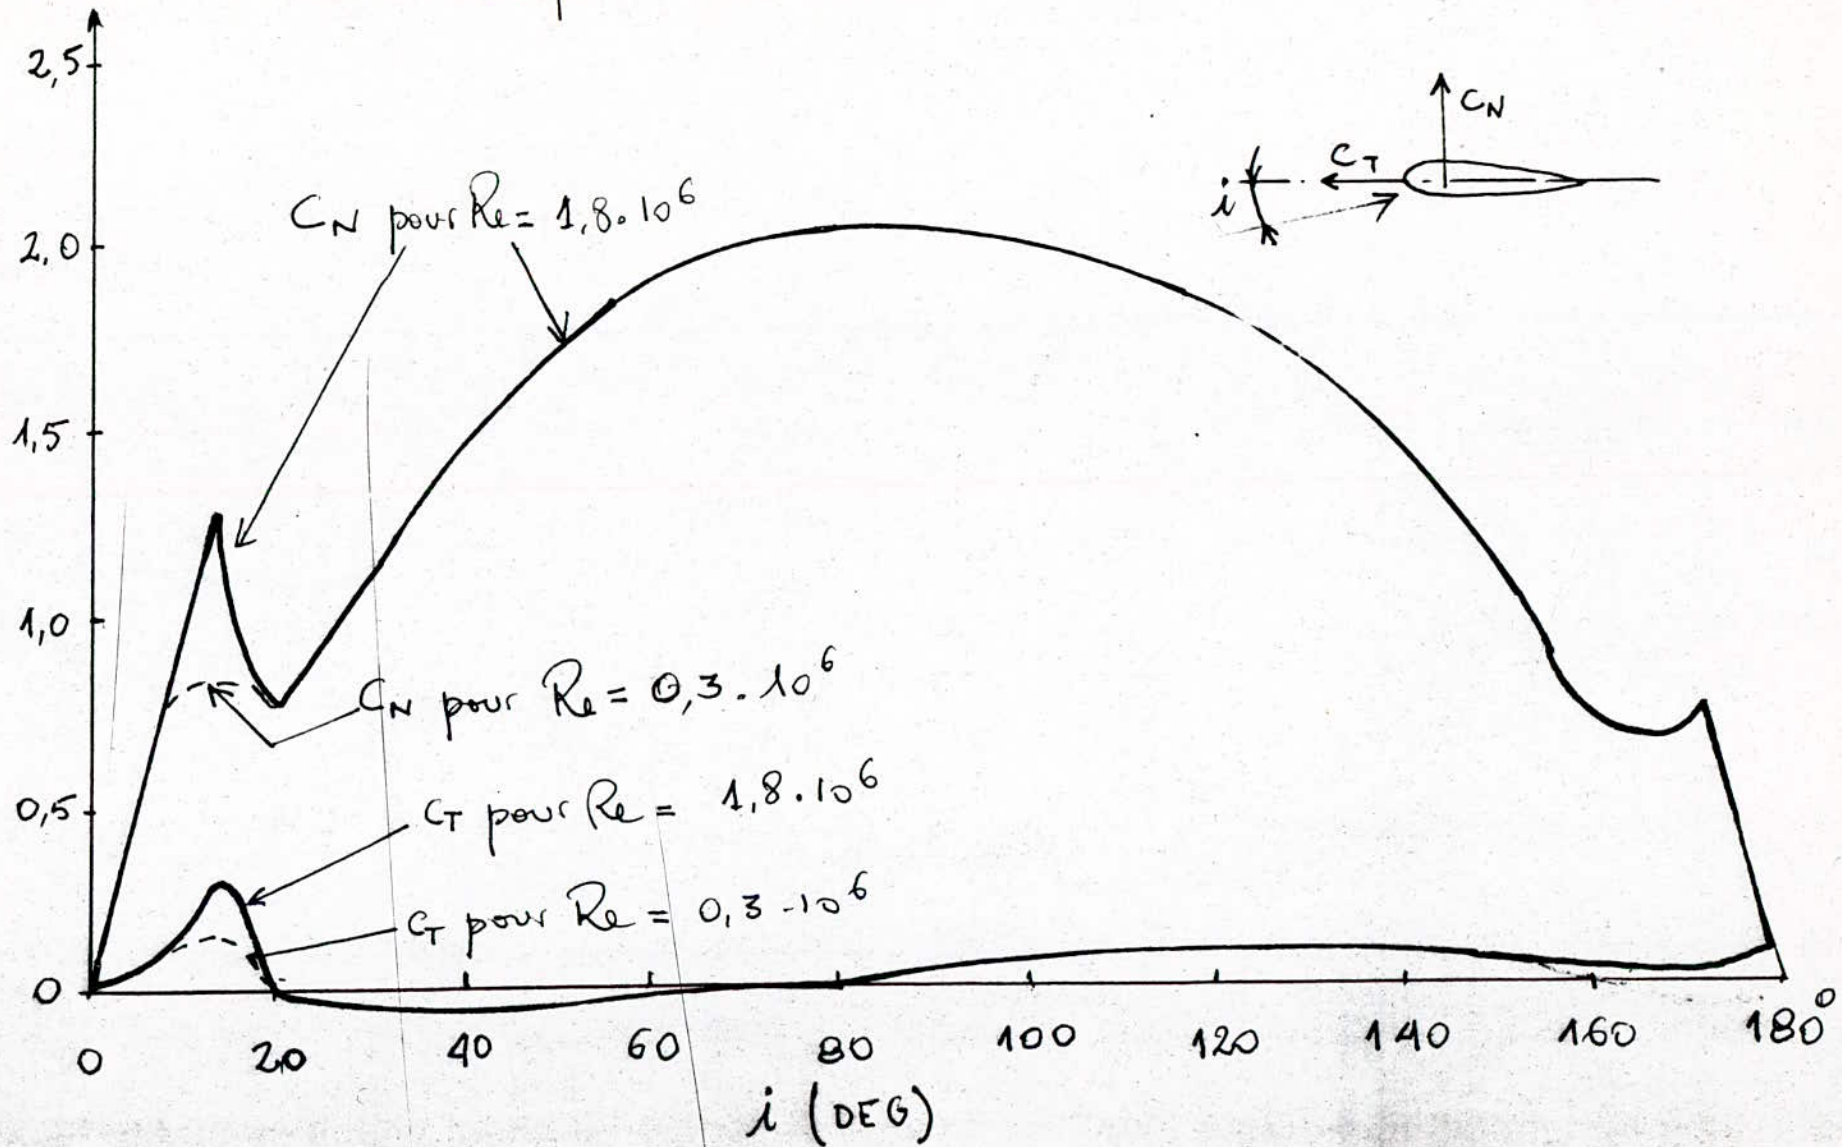 2,5
2,0
1,5
1,0
0,5
0
C_N
C_T
i
C_N pour Re = 1,8.10^6
C_N pour Re = 0,3.10^6
C_T pour Re = 1,8.10^6
C_T pour Re = 0,3.10^6
0 20 40 60 80 100 120 140 160 180°
i (DEG)